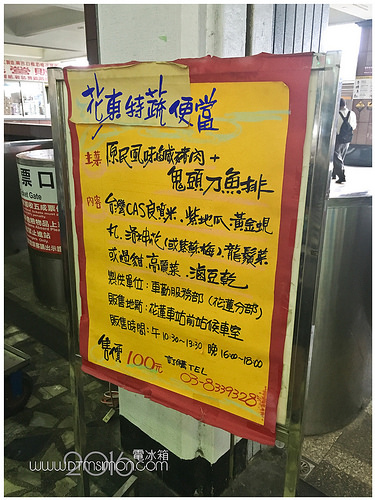 花東特蔬便當
主菜 原民風味鹹豬肉+
鬼頭刀魚排
內容 台灣CAS良質米、紫地瓜、黃金蜆
丸、洛神花(或紫蘇梅)、龍鬚菜
或過貓、高麗菜、滷豆乾
製供單位:車勤服務部(花蓮分部)
販售地點:花蓮車站前站候車室
販售時間:午10:30-13:30,晚16:00-18:00
售價 100元 訂購TEL
03-8339328
票口
et Gate
2016 電冰箱
www.DTMSIMON.COM